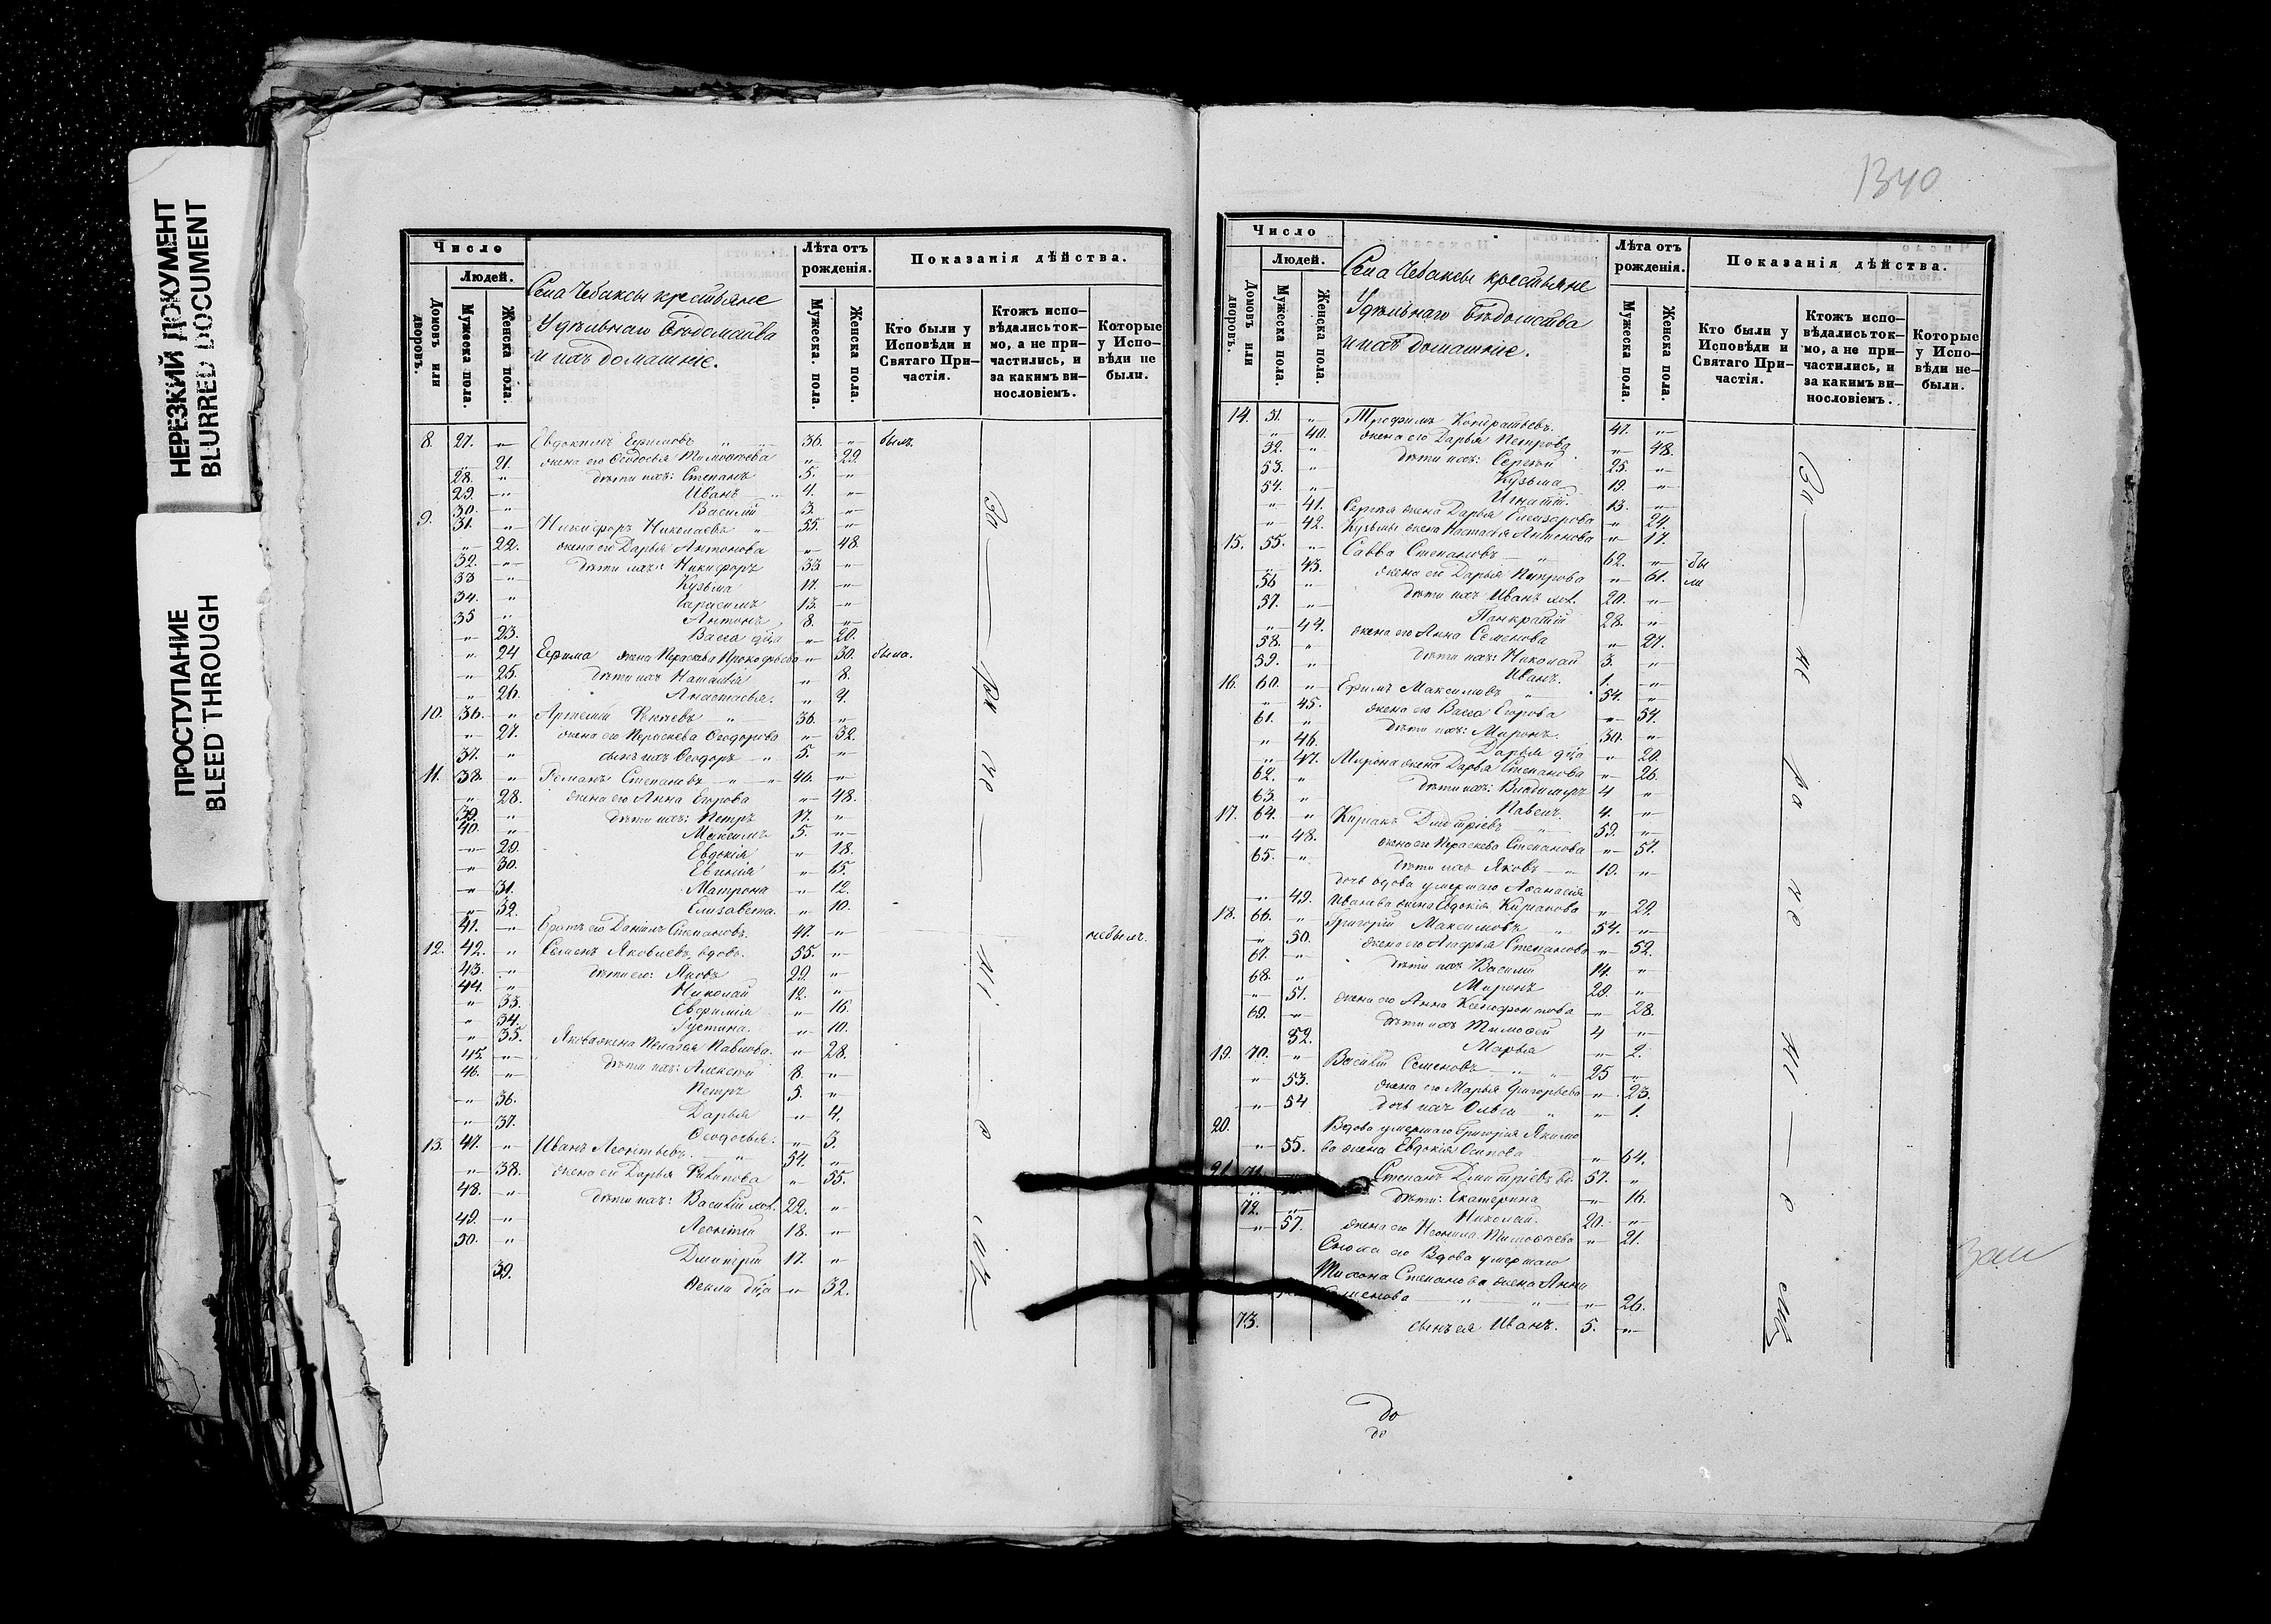 НЕРЕЗКИЙ ДОКУМЕНТ
BLURRED DOCUMENT
ПРОСТУПАНИЕ
BLEED THROUGH
Число
Людей.
Домовъ или дворовъ.
Мужеска пола.
Женска пола.
Села Чебаксы крестьяне
Удѣльнаго Вѣдомства
и ихъ домашніе.
Лѣта отъ рожденія.
Мужеска пола.
Женска пола.
Показанія дѣйства.
Кто были у Исповѣди и Святаго Причастія.
Ктожъ исповѣдались токмо, а не причастились, и за какимъ винословіемъ.
Которые у Исповѣди не были.
8. 27. " Евдокимъ Ефимовъ " " 36. " былъ
" 21. жена его Ѳеодосья Тимоѳеева " 29.
28. " дѣти ихъ: Степанъ 5. "
29. " Иванъ 4. "
30. " Василій 3. "
9. 31. " Никифоръ Николаевъ " 55. "
" 22. жена его Дарья Антонова " 48.
32. " дѣти ихъ: Никифоръ 33. "
33 " Кузьма 17. "
34. " Гарасимъ 13. "
35 " Антонъ 8. "
" 23. Васса дѣ̃ца " 20.
" 24 Ефима жена Параскева Прокофьева " 30. была.
" 25. дѣти ихъ Наталья " 8.
" 26. Анастасья. " 4.
10. 36. " Артемій " 36. "
" 27. жена его Параскева Ѳеодорова " 32.
37. " сынъ ихъ Ѳеодоръ " 5. "
11. 38. " Романъ Степановъ " " 46. "
" 28. жена его Анна Егорова " 48.
39. " дѣти ихъ: Петръ 17. "
40. " Максимъ 5. "
" 29. Евдокія " 18.
" 30. " 15.
" 31. Матрона " 12.
" 32. Елизавета. " 10.
41. " Братъ его Даніилъ Степановъ. 47. " небылъ.
12. 42. " Семенъ Яковлевъ, вдовъ. 55. "
43. " дѣти его: Яковъ 29. "
44. " Николай 12. "
" 33. Евфимія " 16.
" 34. Густина. " 10.
" 35. Якова жена Пелагея Павлова. " 28.
45. " дѣти ихъ: Алексѣй 8. "
46. " Петръ 5. "
" 36. Дарья " 4.
" 37. Ѳеодосья. " 3.
13. 47. " Иванъ Леонтьевъ. " 54. "
" 38. жена его Дарья Филипова " 55.
48. " дѣти ихъ: Василій хол. 22. "
49. " Леонтій 18. "
50. " Дмитрій 17. "
39. Ѳекла дѣ̃ца " 32.
1340
Число
Людей.
Домовъ или дворовъ.
Мужеска пола.
Женска пола.
Села Чебаксы крестьяне
Удѣльнаго Вѣдомства
и ихъ домашніе.
Лѣта отъ рожденія.
Мужеска пола.
Женска пола.
Показанія дѣйства.
Кто были у Исповѣди и Святаго Причастія.
Ктожъ исповѣдались токмо, а не причастились, и за какимъ винословіемъ.
Которые у Исповѣди небыли.
14. 51. " Трофимъ Кондратьевъ. 47. "
" 40. жена его Дарья Петрова " 48.
52. " дѣти ихъ: Сергѣй 25. "
53. " Кузьма 19. "
54. " Игнатій. 13. "
" 41. Сергѣя жена Дарья Елизарова " 24.
" 42. Кузьмы жена Настасья Антонова " 17.
15. 55. " Савва Степановъ " 62. " бы
" 43. жена его Дарья Петрова " 61. ли
56 " дѣти ихъ Иванъ хол. 20. "
57. " Панкратій 28. "
" 44. жена его Анна Семенова " 27.
58. " дѣти ихъ: Николай 3. "
59. " Иванъ. 1. "
16. 60. " Ефимъ Максимовъ " 54. "
" 45. жена его Васса Егорова " 54.
61. " дѣти ихъ: Миронъ. 30. "
" 46. Дарья дѣ̃ца " 20.
" 47. Мирона жена Дарья Степанова " 26.
62. " дѣти ихъ: Владимиръ 4 "
63. " Павелъ. 4. "
17. 64. " Киріакъ Дмитріевъ " 59. "
" 48. жена его Параскева Степанова " 57.
65. " дѣти ихъ Яковъ " 10. "
дочь вдова умершаго Аѳанасія
" 49. Иванова жена Евдокія Киріакова " 29.
18. 66. " Григорій Максимовъ " 54. "
" 50. жена его Агафья Степанова " 52.
67. " дѣти ихъ Василій 14. "
68. " Миронъ 29. "
" 51. жена его Анна Ксенофонтова " 28.
69. " дѣти ихъ Тимоѳей 4 "
52. Марья " 2.
19. 70. " Василій Семеновъ " " 25 "
" 53. жена его Марья Григорьева " 23.
" 54 дочь ихъ Ольга " " 1.
20. Вдова умершаго Григорія Якимо
" 55. ва жена Евдокія Осипова " 64.
21. 71. " Степанъ Дмитріевъ вд. 57. "
дѣти: Екатерина " 16.
72. " Николай. 20. "
" 57. жена его Неонила Тимоѳеева " 21.
Сноха его Вдова умершаго
Тихона Степанова жена Анна
Семенова " " " 26.
73. сынъ ея Иванъ. 5. "
до
до